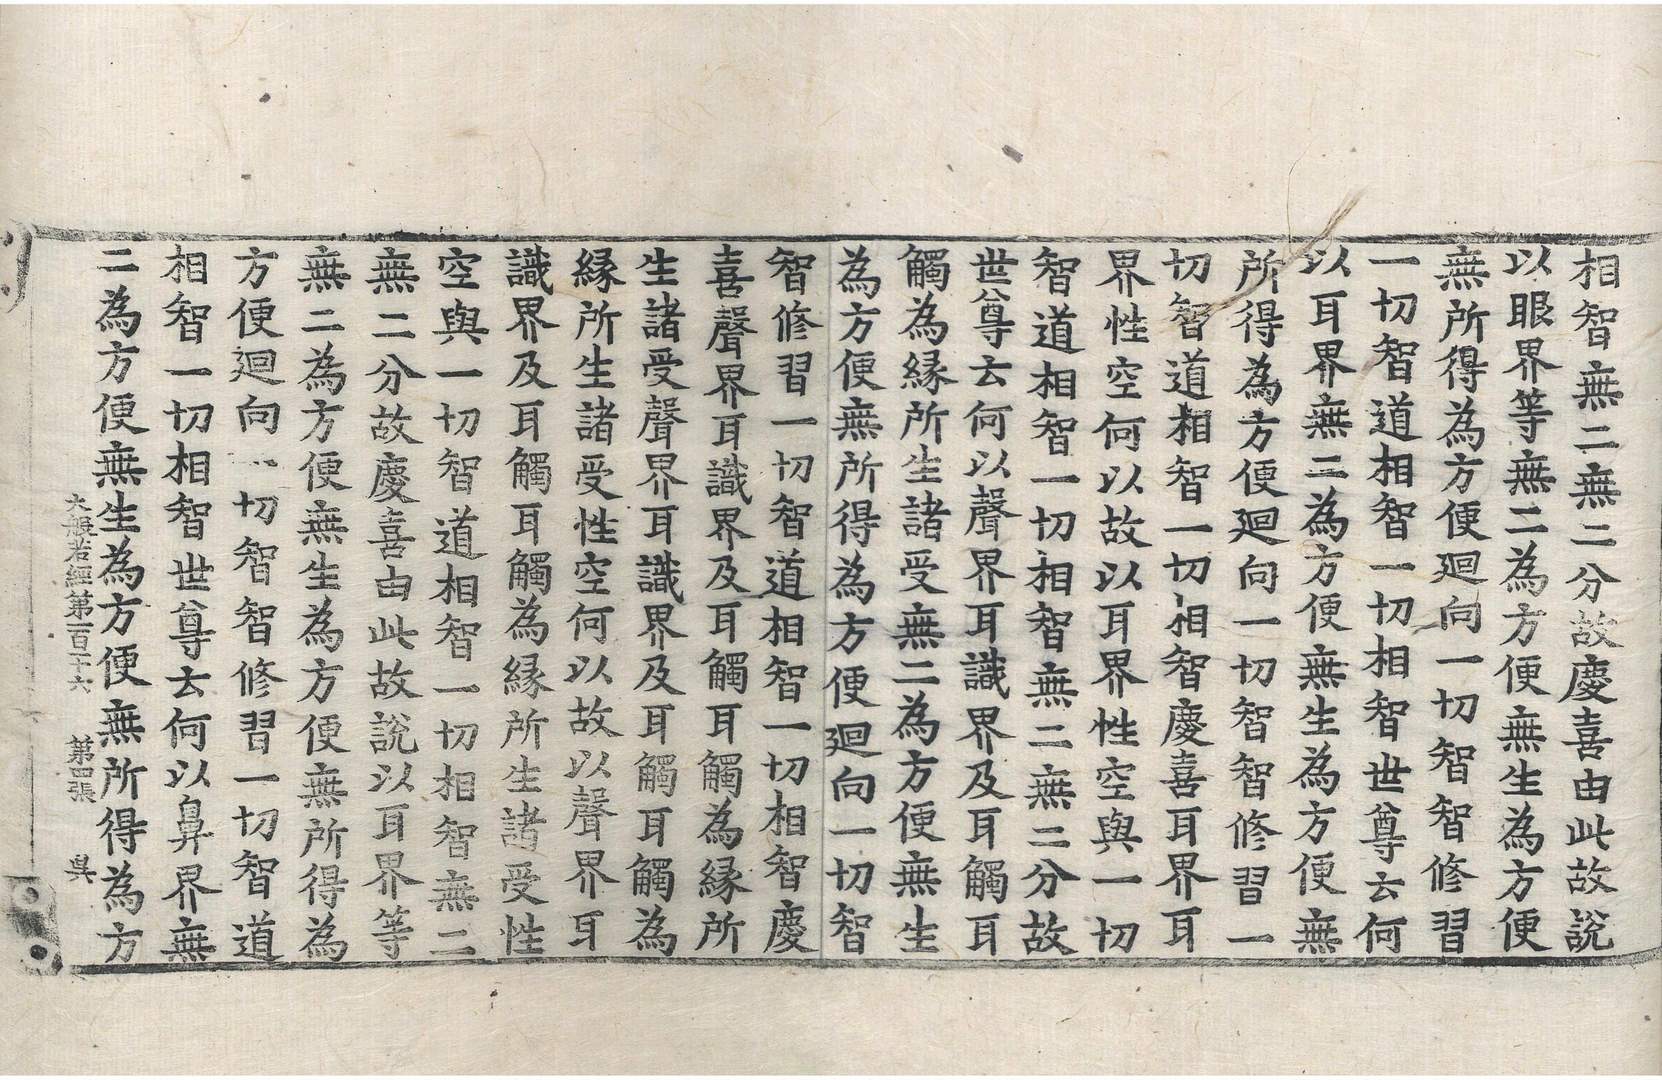 相智無二無二分故慶喜由此故說
以眼界等無二為方便無生為方便
無所得為方便廻向一切智智修習
一切智道相智一切相智世尊云何
以耳界無二為方便無生為方便無
所得為方便廻向一切智智修習一
切智道相智一切相智慶喜耳界耳
界性空何以故以耳界性空與一切
智道相智一切相智無二無二分故
世尊云何以聲界耳識界及耳觸耳
觸為緣所生諸受無二為方便無生
為方便無所得為方便廻向一切智
智修習一切智道相智一切相智慶
喜聲界耳識界及耳觸耳觸為緣所
生諸受聲界耳識界及耳觸耳觸為
緣所生諸受性空何以故以聲界耳
識界及耳觸耳觸為緣所生諸受性
空與一切智道相智一切相智無二
無二分故慶喜由此故說以耳界等
無二為方便無生為方便無所得為
方便廻向一切智智修習一切智道
相智一切相智世尊云何以鼻界無
二為方便無生為方便無所得為方
大般若經第一百十六 第四張 吳